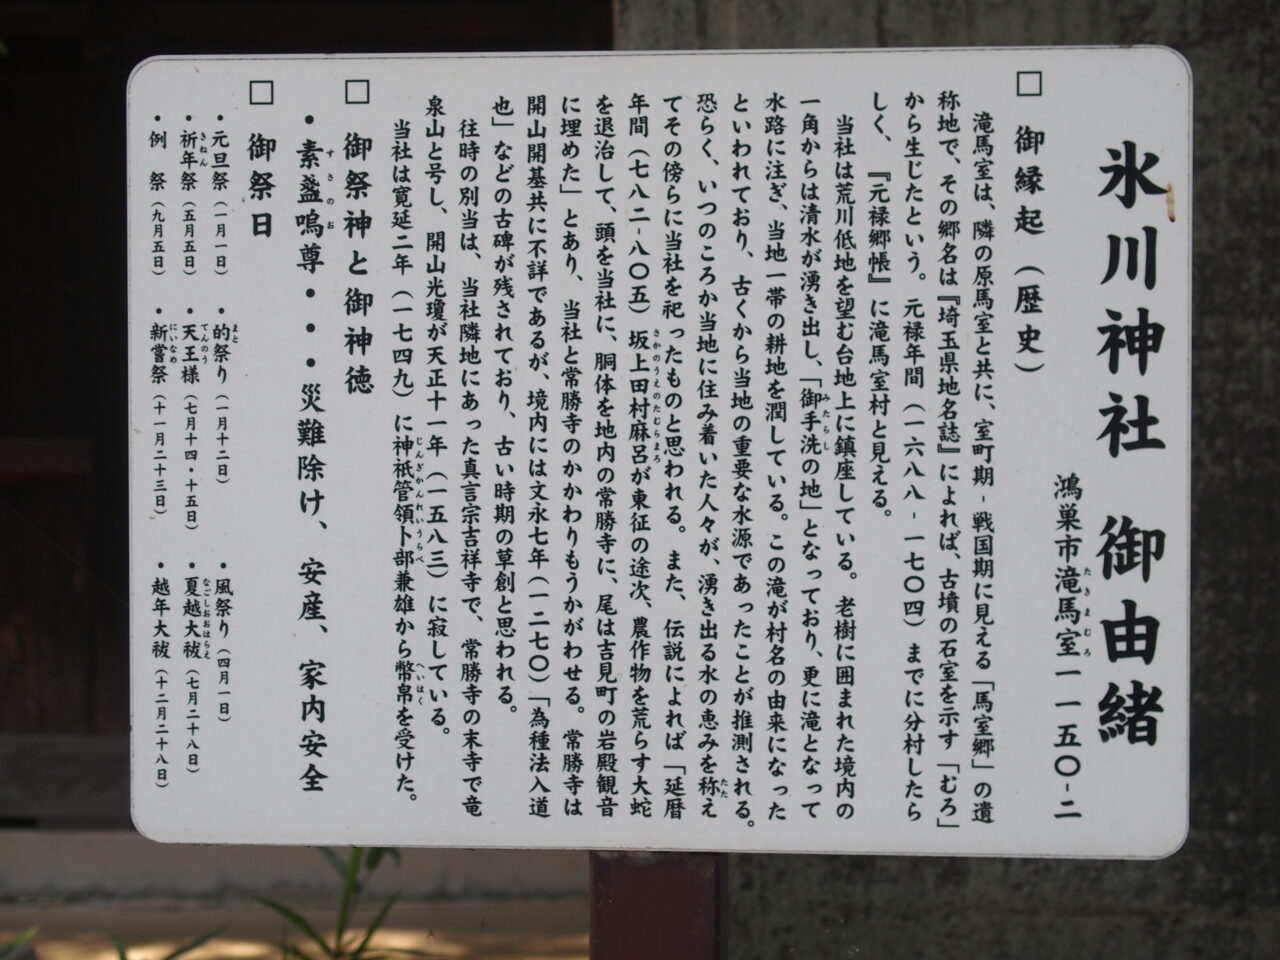 氷川神社 御由緒
鴻巣市滝馬室一一五〇-二
□ 御縁起（歴史）
滝馬室は、隣の原馬室と共に、室町期-戦国期に見える「馬室郷」の遺
称地で、その郷名は『埼玉県地名誌』によれば、古墳の石室を示す「むろ」
から生じたという。元禄年間（一六八八-一七〇四）までに分村したら
しく、『元禄郷帳』に滝馬室村と見える。
当社は荒川低地を望む台地上に鎮座している。老樹に囲まれた境内の
一角からは清水が湧き出し、「御手洗の地」となっており、更に滝となって
水路に注ぎ、当地一帯の耕地を潤している。この滝が村名の由来になった
といわれており、古くから当地の重要な水源であったことが推測される。
恐らく、いつのころか当地に住み着いた人々が、湧き出る水の恵みを称え
てその傍らに当社を祀ったものと思われる。また、伝説によれば「延暦
年間（七八二-八〇五）坂上田村麻呂が東征の途次、農作物を荒らす大蛇
を退治して、頭を当社に、胴体を地内の常勝寺に、尾は吉見町の岩殿観音
に埋めた」とあり、当社と常勝寺のかかわりもうかがわせる。常勝寺は
開山開基共に不詳であるが、境内には文永七年（一二七〇）「為種法入道
也」などの古碑が残されており、古い時期の草創と思われる。
往時の別当は、当社隣地にあった真言宗吉祥寺で、常勝寺の末寺で竜
泉山と号し、開山光瓊が天正十一年（一五八三）に寂している。
当社は寛延二年（一七四九）に神祇管領卜部兼雄から幣帛を受けた。
□ 御祭神と御神徳
・素盞嗚尊・・・災難除け、安産、家内安全
□ 御祭日
・元旦祭（一月一日） ・的祭り（一月十二日） ・風祭り（四月一日）
・祈年祭（五月五日） ・天王様（七月十四・十五日） ・夏越大祓（七月二十八日）
・例 祭（九月五日） ・新嘗祭（十一月二十三日） ・越年大祓（十二月二十八日）